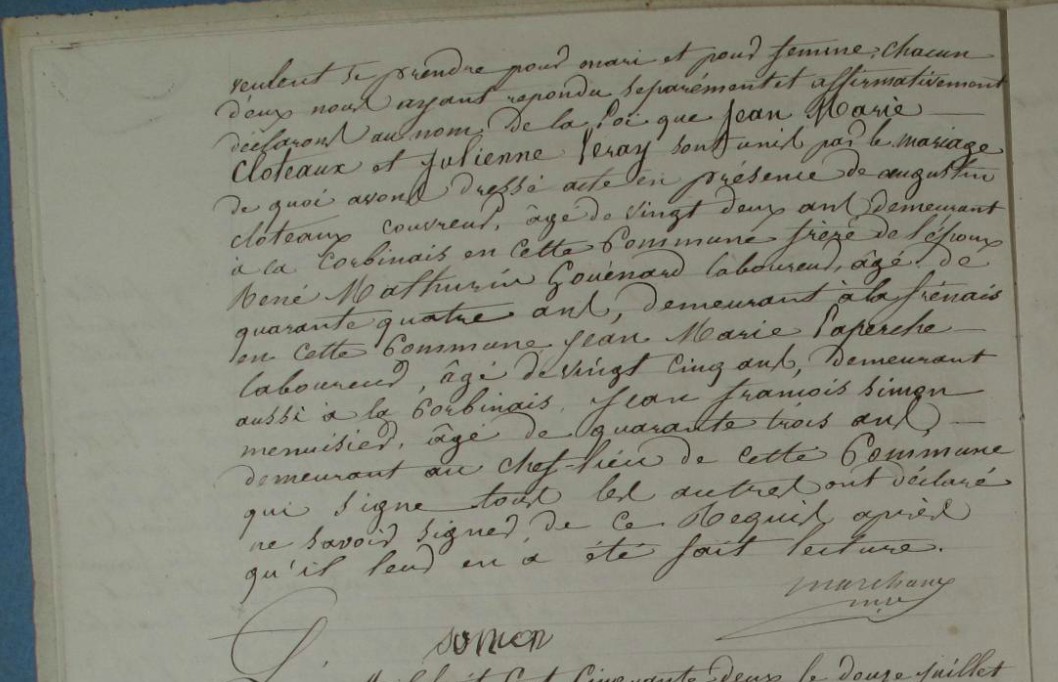 veulent se prendre pour mari et pour femme, chacun
d'eux nous ayant repondu separément et affirmativement
déclarons au nom de la Loi que Jean Marie
Cloteaux et Julienne Veray sont unis par le mariage
de quoi avons dressé acte en présence de augustin
cloteaux couvreur, âgé de vingt deux ans demeurant
à la Corbinais en cette Commune frère de l'époux
René Mathurin Gouénard laboureur, âgé de
quarante quatre ans, demeurant à la frénais
en cette Commune Jean Marie Laperche
laboureur, âgé de vingt cinq ans, demeurant
aussi à la Corbinais, Jean francois simon
menuisier, âgé de quarante trois ans,
demeurant au chef-lieu de cette Commune
qui signe tous les autres ont déclaré
ne savoir signer de ce Requis après
qu'il leur en a été fait lecture.
marchand
simon
mil huit Cent Cinquante deux le douze juillet